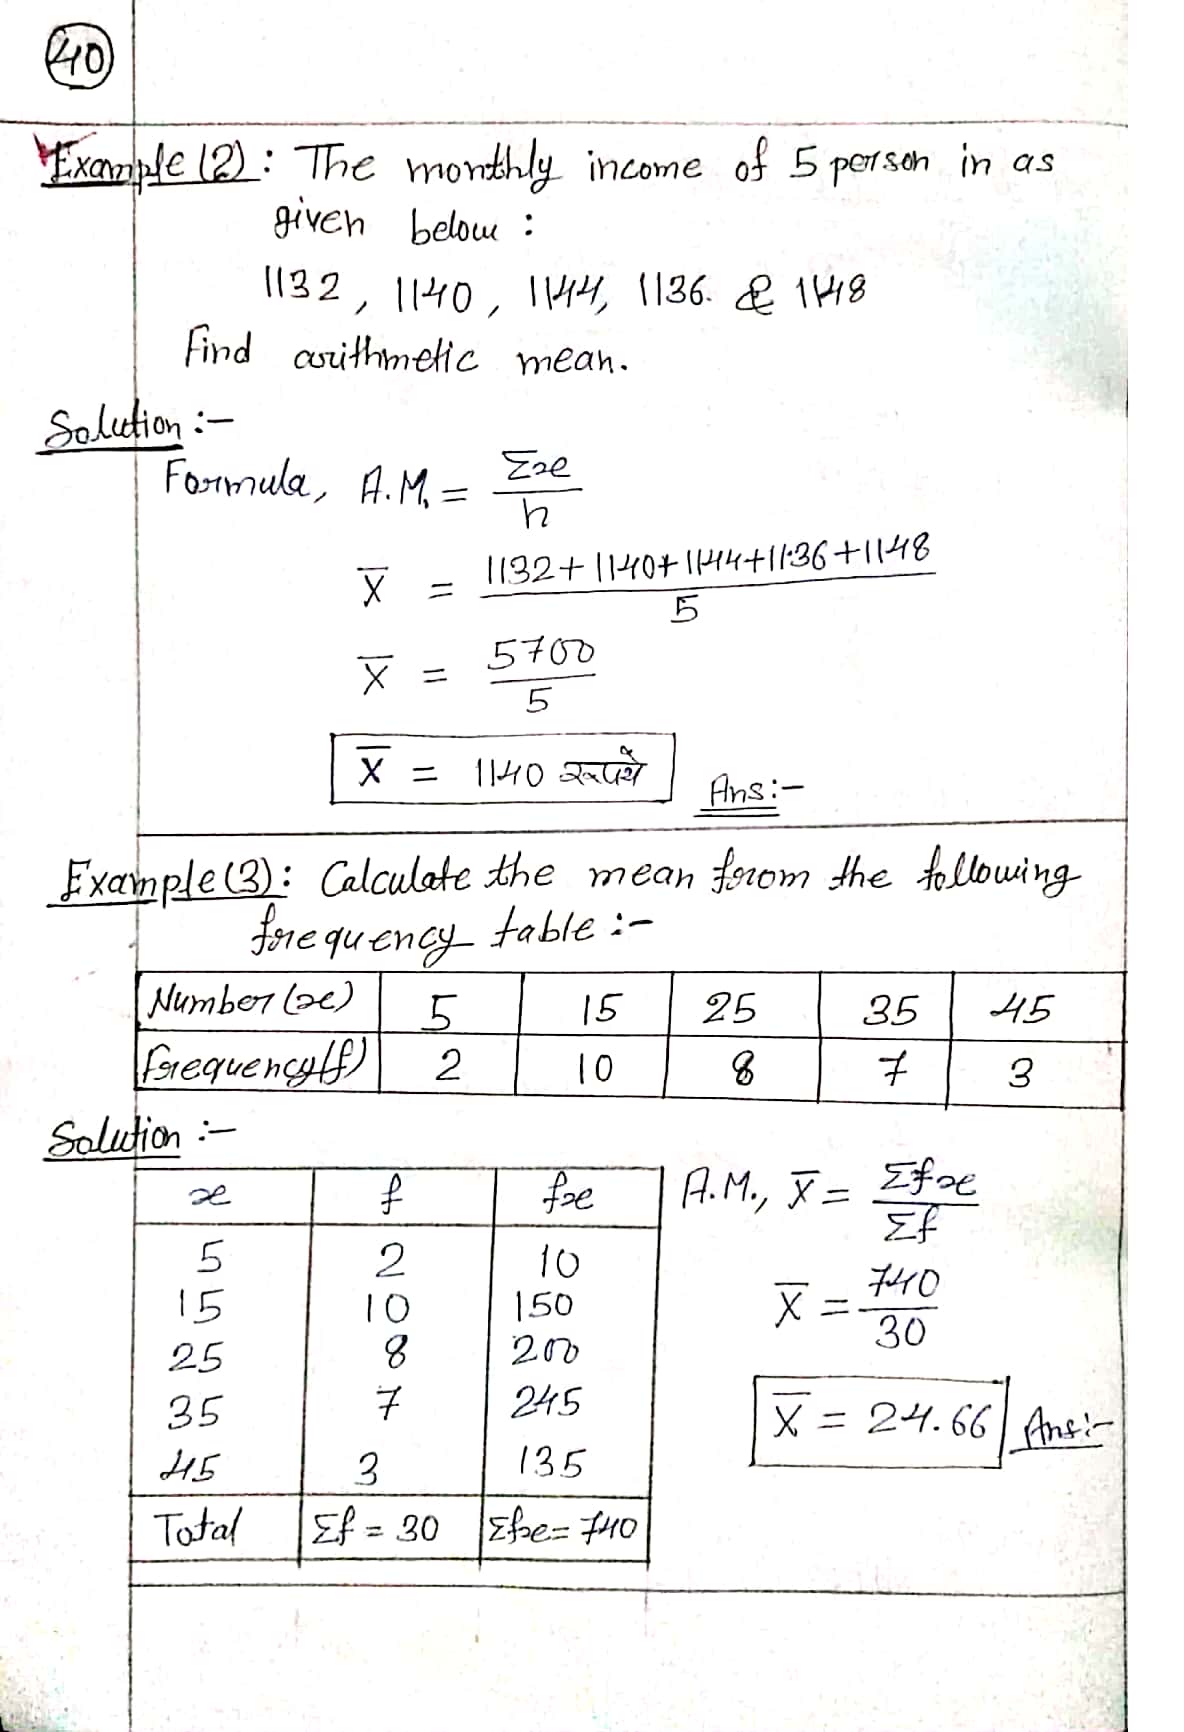 40
Example (2) : The monthly income of 5 person in as
given below :
1132, 1140, 1144, 1136. & 1148
Find arithmetic mean.
Solution :-
Formula, A.M. = Σx/n
X̅ = (1132+1140+1144+1136+1148)/5
X̅ = 5700/5
X̅ = 1140 रूपये Ans:-
Example (3) : Calculate the mean from the following
frequency table :-
Number (x) 5 15 25 35 45
frequency (f) 2 10 8 7 3
Solution :-
x f fx A.M., X̅ = Σfx/Σf
5 2 10
15 10 150 X̅ = 740/30
25 8 200
35 7 245 X̅ = 24.66 Ans:-
45 3 135
Total Σf = 30 Σfx = 740